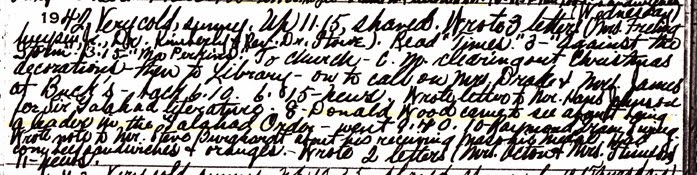 Wednesday
1942 Very cold, sunny. Up 11.15, shaved. Wrote 3 letters (Mrs. Freling
huysen, Jr., Dr. Kimberly & Rev. Dr. Stowe). Read "Times". 3 - "Against the
Storm". 3:15 - "Ma Perkins". To church - C. M. clearing out Christmas
decorations then to library - on to call on Mrs. Drake & Mrs. James
at Buck's - back 6.10. 6.15 - news. Wrote letter to Mr. Hays
for Sir Galahad literature. 8 - Donald Wood came to see about being
a leader in the Galahad Order - went 9.40. To Raymond
Wrote note to Mr. Burghardt about his receiving masonic medal.
sandwiches & oranges. Wrote 2 letters (Mrs. Acton & Mrs.
11 - news.
Very cold, sunny. Up